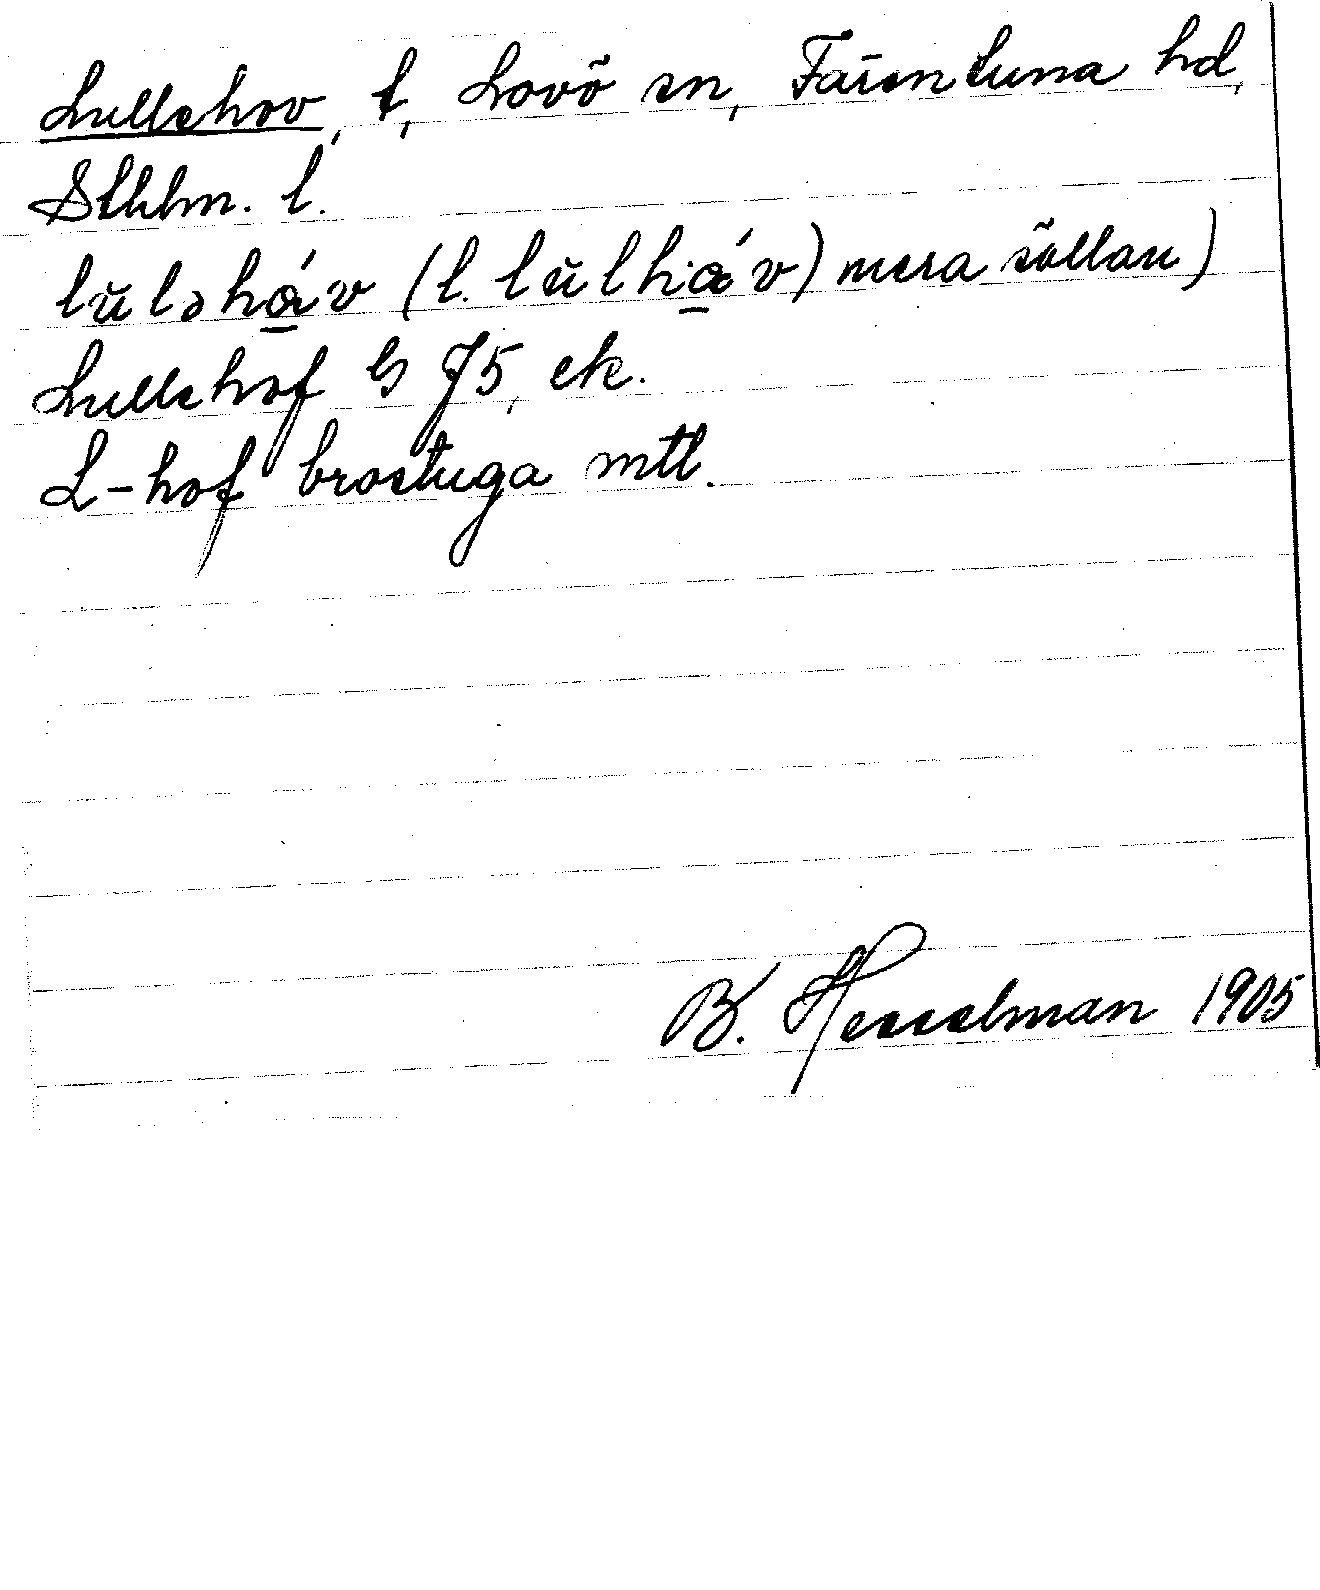 Lullehov, t, Lovö sn, Färentuna hd,
Sthlm. l.
lŭləhá̱v (l. lŭlhá̱v) mera sällan)
Lullehof G J5, ek.
L-hof brostuga mtl.
B. Hesselman 1905